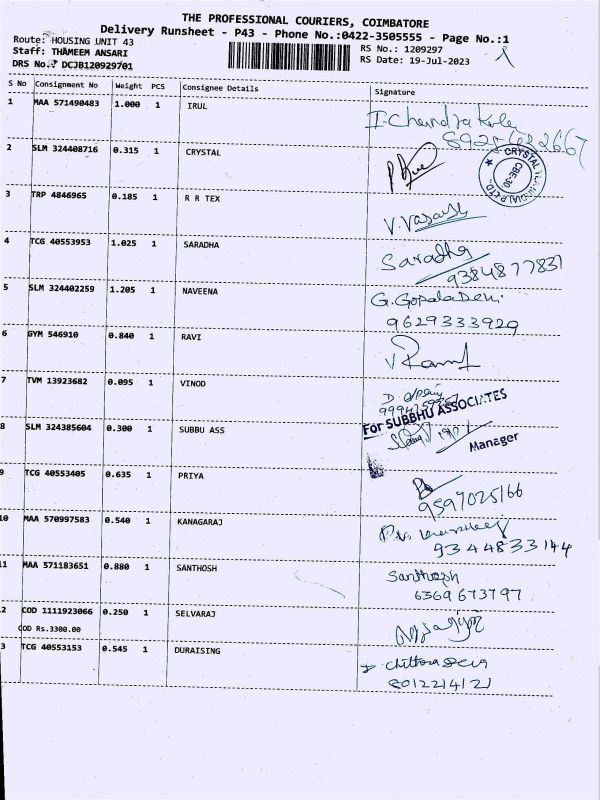 THE PROFESSIONAL COURIERS, COIMBATORE
Delivery Runsheet - P43 - Phone No.:0422-3505555 - Page No.:1
Route: HOUSING UNIT 43
RS No.: 1209297
Staff: THAMEEM ANSARI
RS Date: 19-Jul-2023
DRS No.: DCJB120929701
S No Consignment No Weight PCS Consignee Details Signature
1 MAA 571490483 1.000 1 IRUL
I. Chandra Kala
2 SLM 324408716 0.315 1 CRYSTAL
CRYSTAL
CBE-30.
3 TRP 4846965 0.185 1 R R TEX
4 TCG 40553953 1.025 1 SARADHA
Saradha
9384877831
5 SLM 324402259 1.205 1 NAVEENA
G. Gopala Devi
9629333929
6 GYM 546910 0.840 1 RAVI
7 TVM 13923682 0.095 1 VINOD
8 SLM 324385604 0.300 1 SUBBU ASS
For SUBBHU ASSOCIATES
Manager
9 TCG 40553405 0.635 1 PRIYA
9597025166
10 MAA 570997583 0.540 1 KANAGARAJ
9344833144
11 MAA 571183651 0.880 1 SANTHOSH
Santhosh
6369673797
2 COD 1111923066 0.250 1 SELVARAJ
COD Rs.3300.00
3 TCG 40553153 0.545 1 DURAISING
8012214121